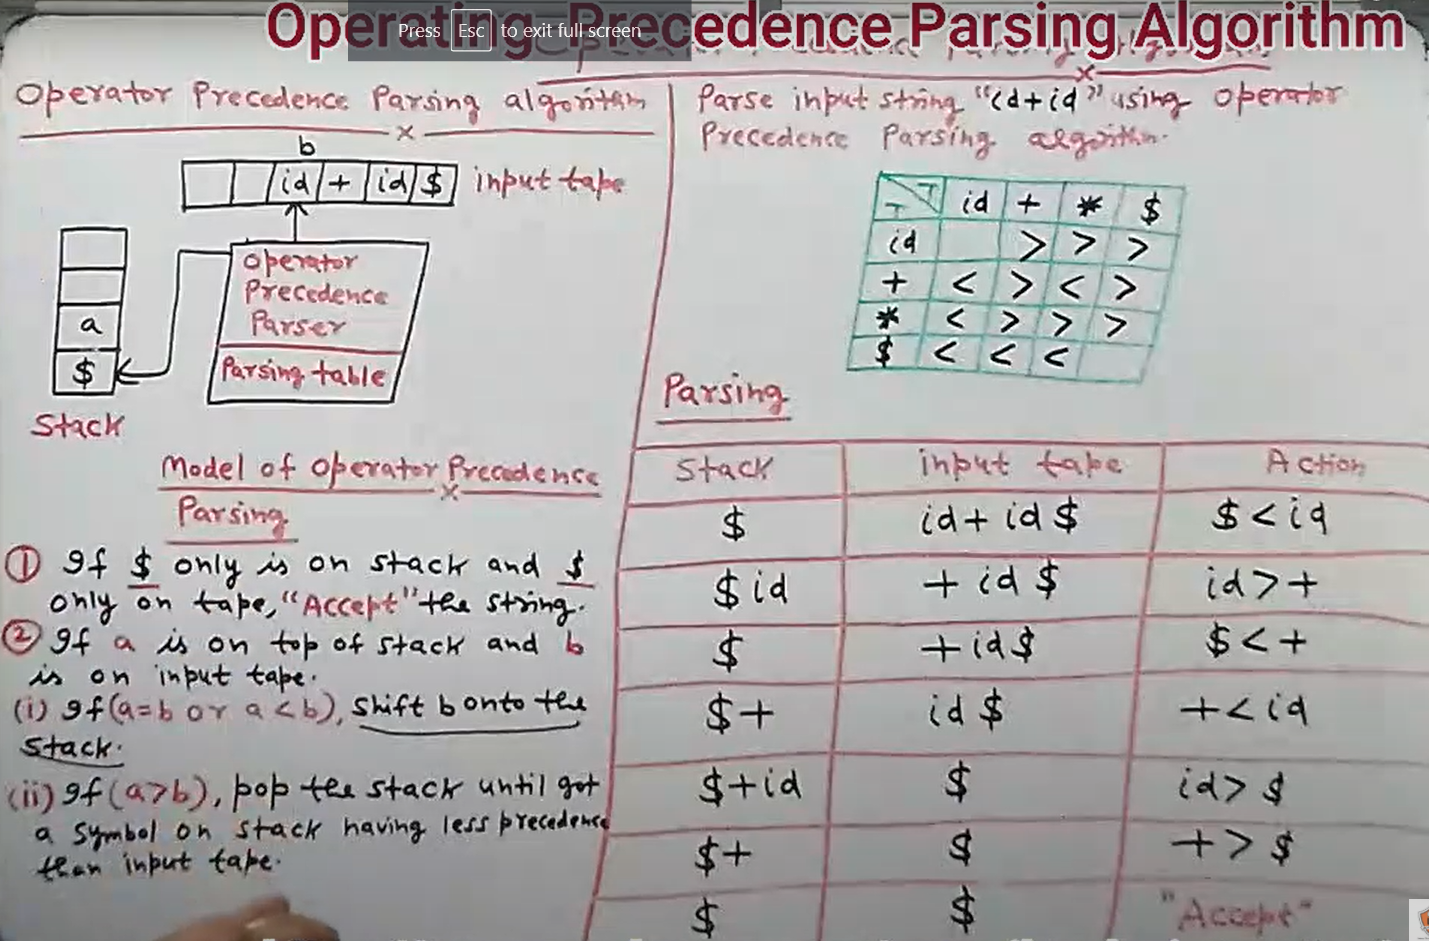 Operating Precedence Parsing Algorithm
Press Esc to exit full screen
Operator Precedence Parsing algorithm
b
id + id $ input tape
Operator
Precedence
Parser
Parsing table
a
$
Stack
Model of Operator Precedence
Parsing
① If $ only is on stack and $
only on tape, "Accept" the string.
② If a is on top of stack and b
is on input tape.
(i) If (a=b or a<b), shift b onto the
stack.
(ii) If (a>b), pop the stack until got
a symbol on stack having less precedence
then input tape.
Parse input string "id+id" using operator
Precedence Parsing algorithm.
T T id + * $
id > > >
+ < > < >
* < > > >
$ < < <
Parsing
Stack input tape Action
$ id+id$ $<id
$id +id$ id>+
$ +id$ $<+
$+ id$ +<id
$+id $ id>$
$+ $ +>$
$ $ "Accept"